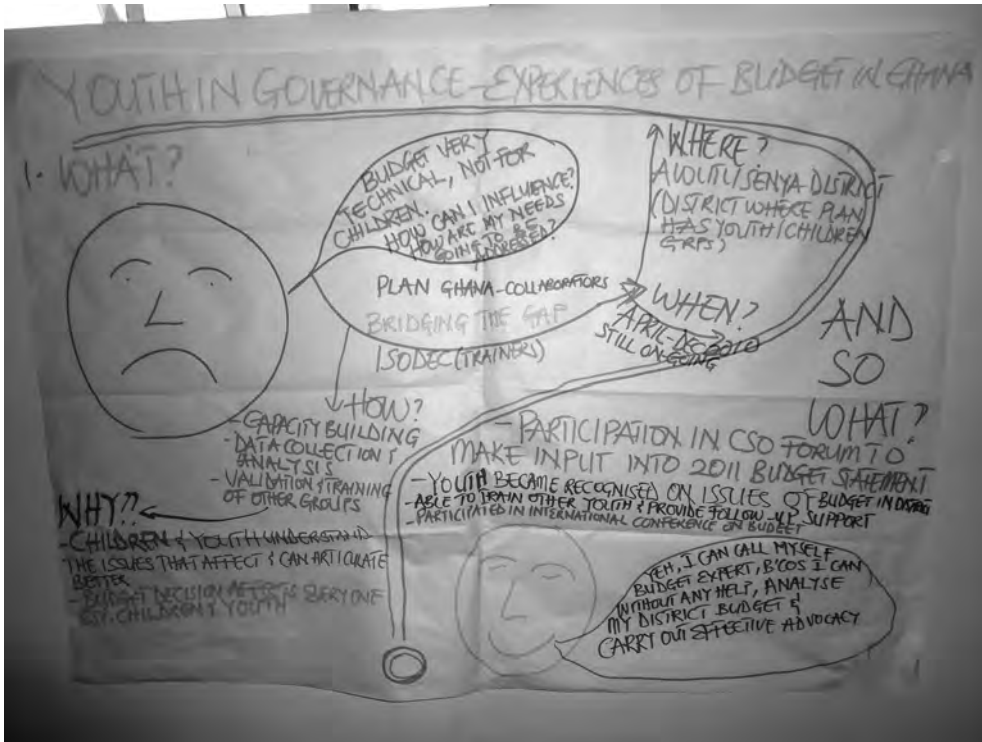 YOUTH IN GOVERNANCE - EXPERIENCES OF BUDGET IN GHANA
1. WHAT?
BUDGET VERY
TECHNICAL, NOT FOR
CHILDREN.
HOW CAN I INFLUENCE?
HOW ARE MY NEEDS
GOING TO BE
ADDRESSED?
PLAN GHANA-COLLABORATORS
BRIDGING THE GAP
ISODEC (TRAINERS)
WHERE?
AWUTU SENYA DISTRICT
(DISTRICT WHERE PLAN
HAS YOUTH/CHILDREN
GRPS)
WHEN?
APRIL-
STILL ON-GOING
HOW?
- CAPACITY BUILDING
- DATA COLLECTION &
ANALYSIS
- VALIDATION & TRAINING
OF OTHER GROUPS
WHY??
- CHILDREN & YOUTH UNDERSTAND
THE ISSUES THAT AFFECT & CAN ARTICULATE
BETTER
- BUDGET DECISION AFFECTS EVERYONE
ESP. CHILDREN & YOUTH
AND
SO
WHAT?
- PARTICIPATION IN CSO FORUM TO
MAKE INPUT INTO 2011 BUDGET STATEMENT
- YOUTH BECAME RECOGNISED ON ISSUES OF BUDGET IN DISTRICT
- ABLE TO TRAIN OTHER YOUTH & PROVIDE FOLLOW-UP SUPPORT
- PARTICIPATED IN INTERNATIONAL CONFERENCE ON BUDGET
YEH, I CAN CALL MYSELF
BUDGET EXPERT, B'COS I CAN
WITHOUT ANY HELP, ANALYSE
MY DISTRICT BUDGET &
CARRY OUT EFFECTIVE ADVOCACY